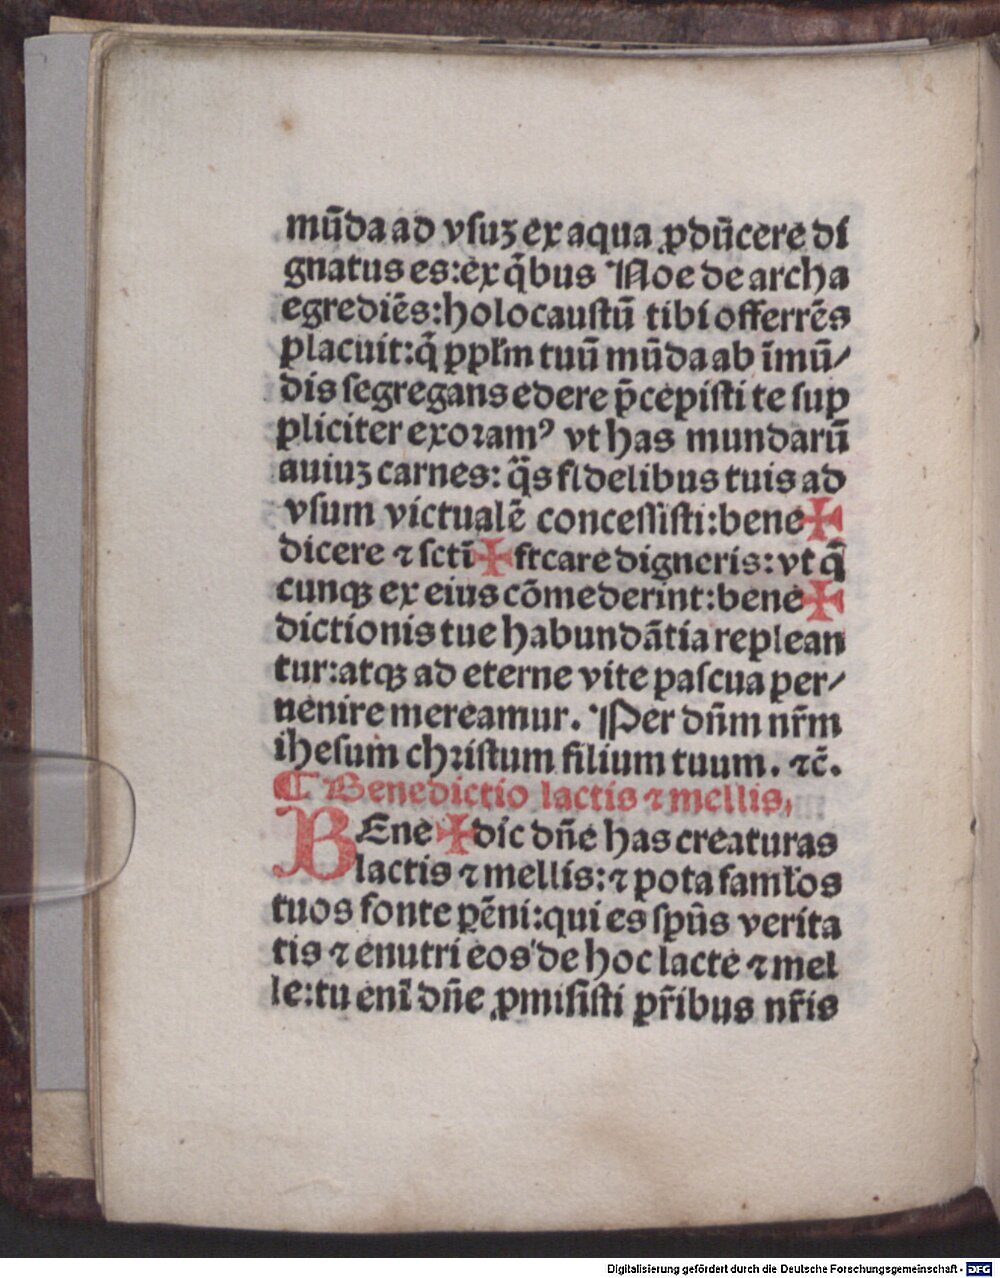 mūda ad vſuꝫ ex aqua ꝓdūcere di
gnatus es:ex q̄bus Noe de archa
egrediēs:holocauſtū tibi offerrēs
placuit:q̄ ꝑpłm tuū mūda ab īmū/
dis ſegregans edere p̄cepiſti te ſup
pliciter exoꝛamꝰ vt has mundarū
auiuꝫ carnes: q̄s fidelibus tuis ad
vſum victualē conceſſiſti:bene✠
dicere ⁊ ſcti✠ficare digneris: vt q̄
cunqꝫ ex eius cōmederint:bene✠
dictionis tue habundātia replean
tur:atqꝫ ad eterne vite paſcua per/
uenire mereamur. Per dn̄m nr̄m
iheſum chꝛiſtum filium tuum. ⁊c̄.
¶ Benedictio lactis ⁊ mellis,
BEne✠dic dn̄e has creaturas
lactis ⁊ mellis: ⁊ pota famłos
tuos fonte ꝑēni:qui es ſpūs verita
tis ⁊ enutri eos de hoc lacte ⁊ mel
le:tu enī dn̄e ꝓmiſiſti pr̄ibus nr̄is
Digitalisierung gefördert durch die Deutsche Forschungsgemeinschaft - DFG